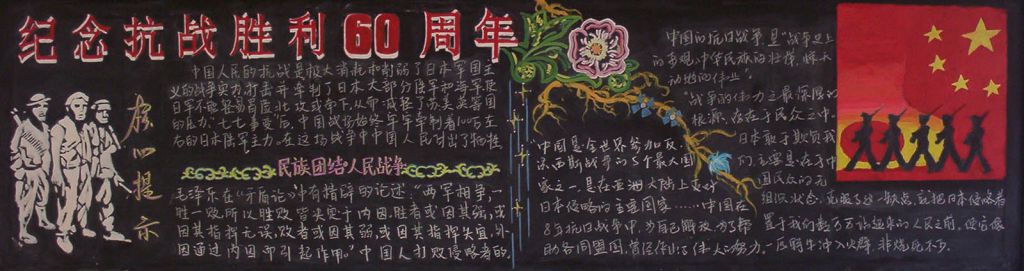 纪念抗战胜利60周年
中国人民的抗战是极大消耗和削弱了日本军国主
义的战争实力,打击并牵制了日本大部分陆军和海军使
日军不能轻易冒险北攻或南下,从而减轻了苏美英等国
的压力。七七事变后,中国战场始终牢牢牵制着100万左
右的日本陆军主力。在这场战争中中国人民付出了牺牲
核心提示
民族团结人民战争
毛泽东在《矛盾论》中有精辟的论述:"两军相争,一
胜一败所以胜败,皆决定于内因,胜者或因其强,或
因其指挥无误,败者或因其弱,或因其指挥失宜,外
因通过内因而引起作用。"中国人打败侵略者的
中国的抗日战争是"战争史上
的奇观,中华民族的壮举,惊天
动地的伟业"
"战争的伟力之最深厚的
根源,存在于民众之中。
日本敢于欺负我
们,主要是在于中
国民众的无
组织状态。克服了这一缺点,就把日本侵略者
置于我们数万万站起来的人民之前,使它像
一匹野牛冲入火阵,
非烧死不可。
中国是全世界参加反
法西斯战争的5个最大国
家之一,是在亚洲大陆上反对
日本侵略的主要国家……中国在
8年抗日战争中,为自己解放,为了帮
助各同盟国,曾经作了伟大的努力。